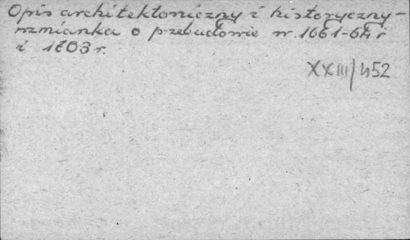 Opis architektoniczny i historyczny -
wzmianka o przebudowie w 1661-64 r
i 1803 r.
XXIII/452